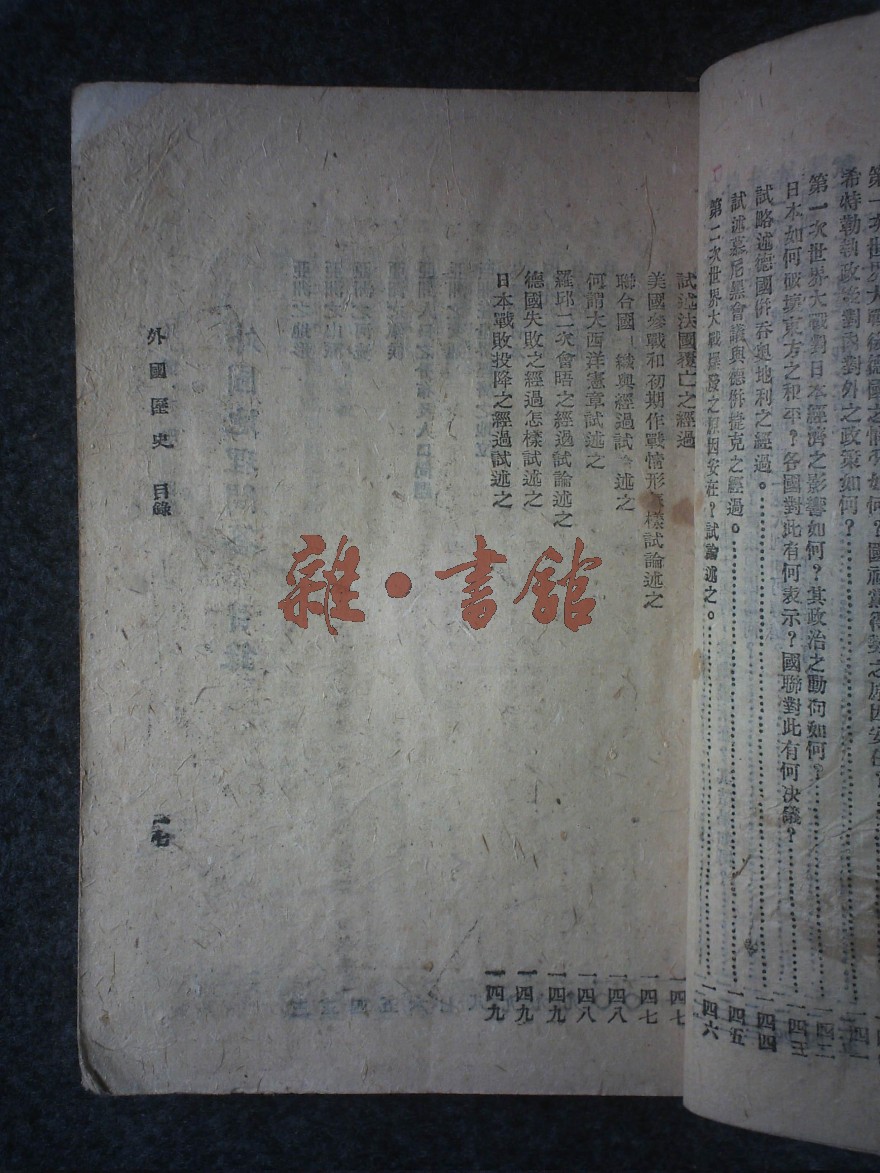 希特勒執政後對內對外之政策如何？
第一次世界大戰對日本經濟之影響如何？其政治之動向如何？
日本如何破壞東方之和平？各國對此有何表示？國聯對此有何決議？
試略述德國併吞奧地利之經過。一四四
試述慕尼黑會議與德併捷克之經過。一四五
第二次世界大戰爆發之原因安在？試論述之。一四六
試述法國覆亡之經過 一四七
美國參戰和初期作戰情形樣試論述之 一四七
聯合國織與經過試述之 一四八
何謂大西洋憲章試述之 一四八
羅邱二次會晤之經過試論述之 一四九
德國失敗之經過怎樣試述之 一四九
日本戰敗投降之經過試述之 一四九
外國歷史 目錄
一七
雜·書館